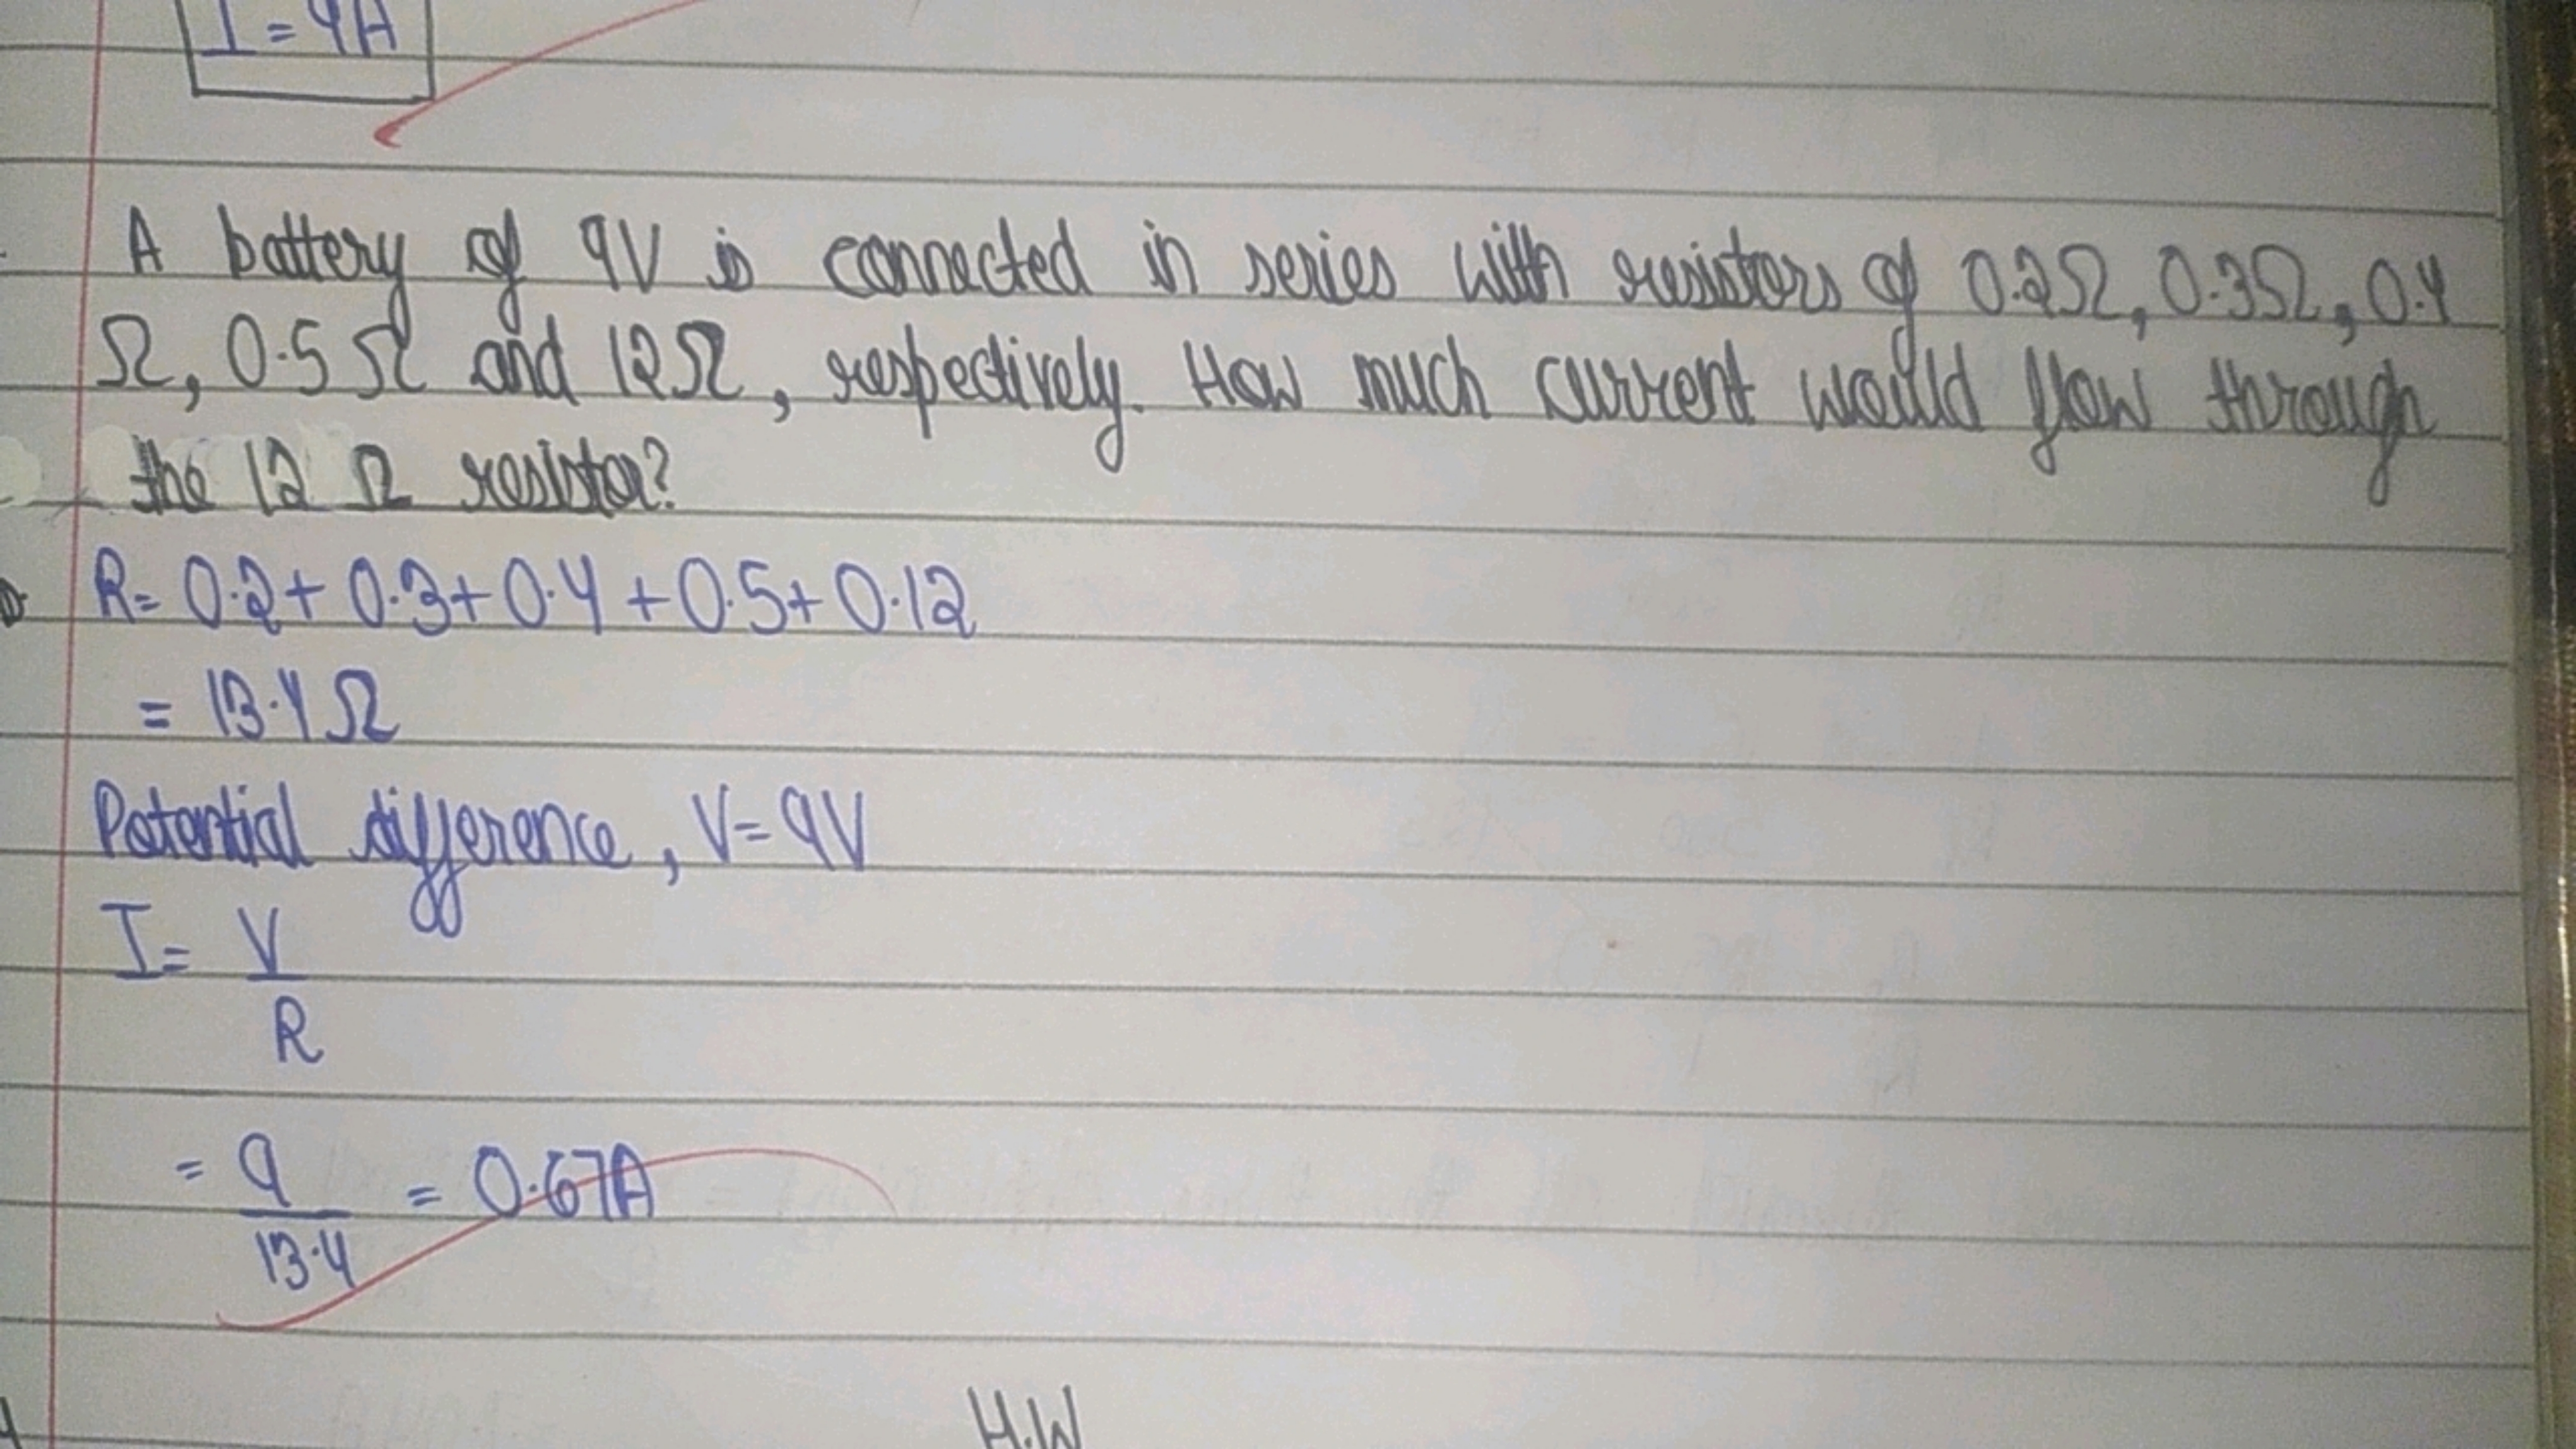 I = 4A
A battery of 9V is connected in series with resistors of 0.2Ω, 0.3Ω, 0.4
Ω, 0.5 Ω and 12Ω, respectively. How much current would flow through
the 12 Ω resistor?
R= 0.2+ 0.3+ 0.4 + 0.5+ 0.12
= 13.4Ω
Potential difference, V= 9V
I= V
R
= 9 = 0.67A
13.4
H.W